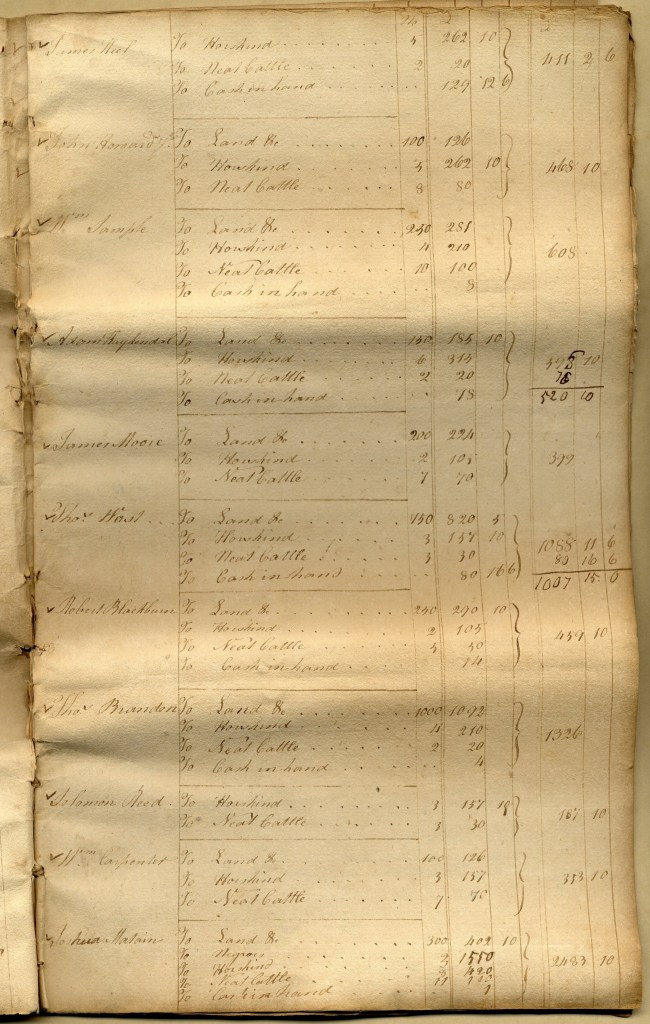 To Horskind 5 262 10
James Neel To Neat Cattle 2 20 411 2 6
To Cash in hand 129 12 6
John Howard To Land &c 100 126
To Horskind 5 262 10 468 10
To Neat Cattle 8 80
Wm Sample To Land &c 250 281
To Horskind 4 210 608
To Neat Cattle 10 100
To Cash in hand 8
Adam To Land &c 150 185 10
To Horskind 6 315 10
To Neat Cattle 2 20 78
To Cash in hand 78 520 10
James Moore To Land &c 200 224
To Horskind 2 105 399
To Neat Cattle 7 70
Thos To Land &c 750 820 5
To Horskind 3 157 10 1088 11 6
To Neat Cattle 3 30 80 16 6
To Cash in hand 80 16 6 1007 15 0
Robert Blackburn To Land &c 250 290 10
To Horskind 2 105 459 10
To Neat Cattle 5 50
To Cash in hand 14
Thos Brandon To Land &c 1000 1092
To Horskind 4 210 1326
To Neat Cattle 2 20
To Cash in hand 4
Solomon Reed To Horskind 3 157 10
To Neat Cattle 3 30 10
Wm Carpenter To Land &c 100 126
To Horskind 3 157 353 10
To Neat Cattle 7 70
Joshua To Land &c 300 402 10
To Negroes 1550 2483 10
To Horskind 8 420
To Neat Cattle 11 110
To Cash in hand 1